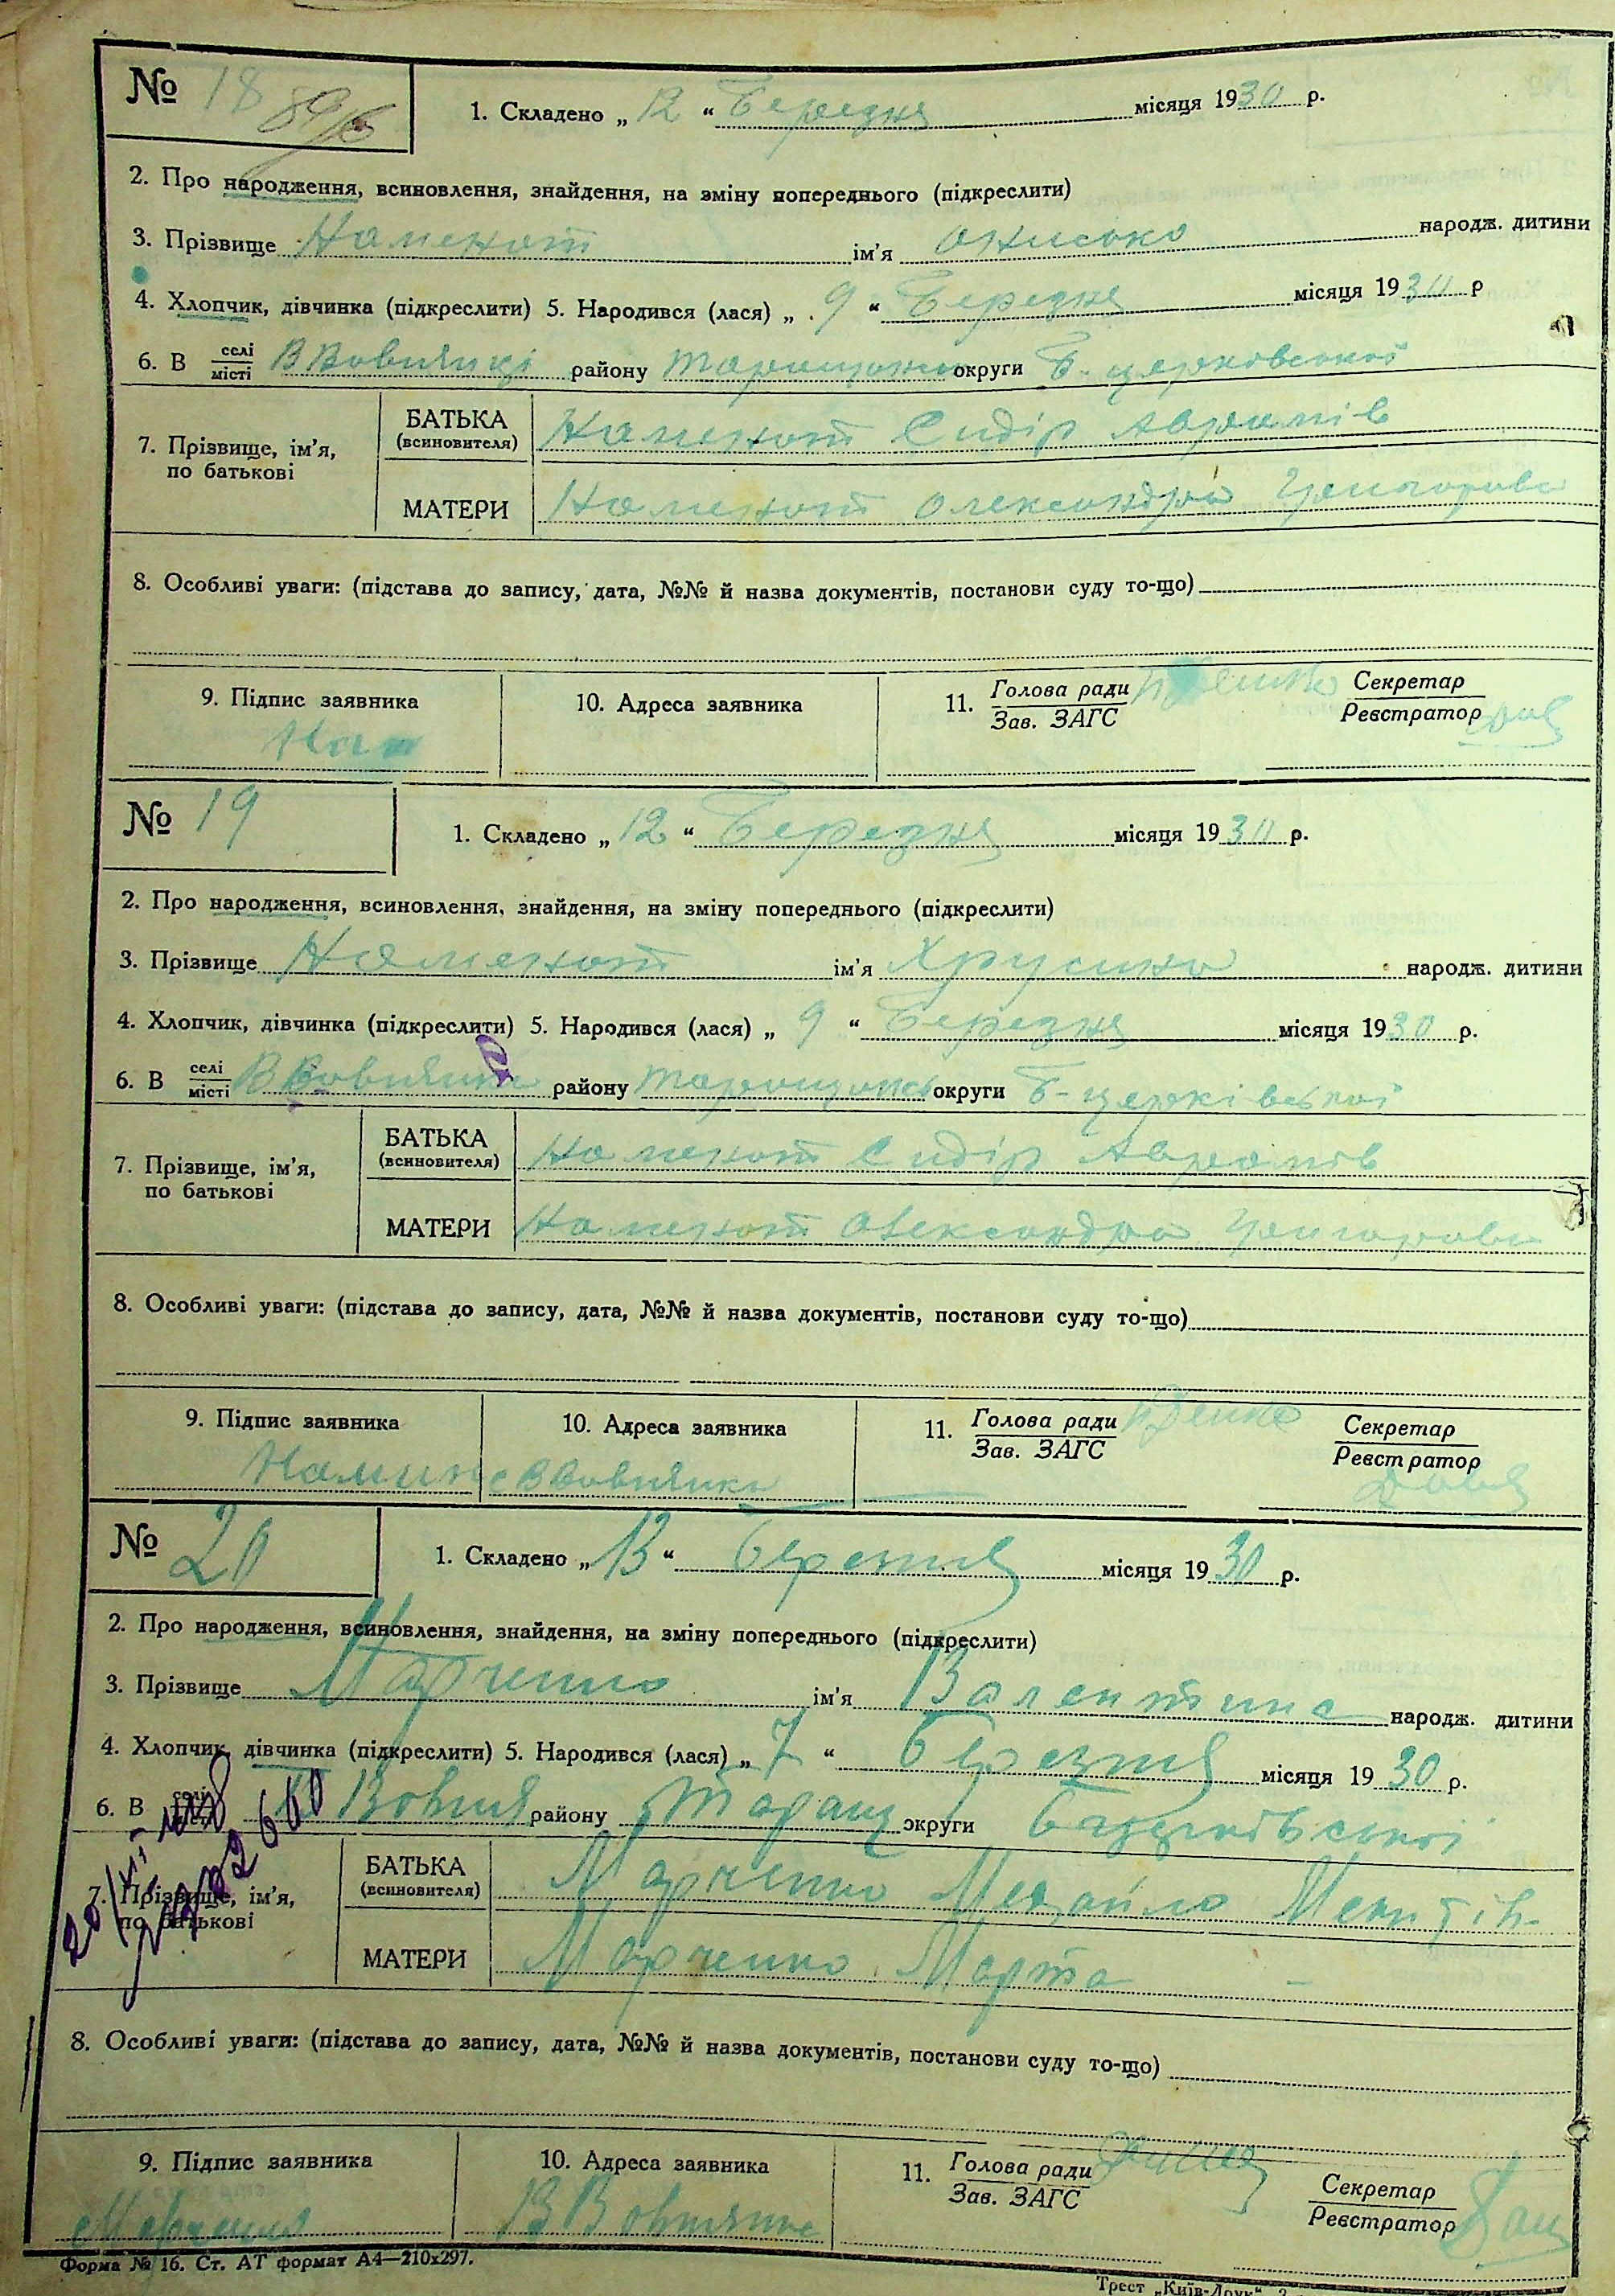 № 18
1. Складено „ 12 “ Березня місяця 1930 р.
2. Про народження, всиновлення, знайдення, на зміну попереднього (підкреслити)
3. Прізвище ім’я Онисько народж. дитини
4. Хлопчик, дівчинка (підкреслити) 5. Народився (лася) „ 9 “ Березня місяця 1930 р
6. В селі місті В Вовнянці району округи Б-церковської
7. Прізвище, ім’я, по батькові
БАТЬКА (всиновителя) Сидір Аврамів
МАТЕРИ Олександра
8. Особливі уваги: (підстава до запису, дата, №№ й назва документів, постанови суду то-що)
9. Підпис заявника
10. Адреса заявника
11. Голова ради Зав. ЗАГС
Секретар Реєстратор
№ 19
1. Складено „ 12 “ Березня місяця 1930 р.
2. Про народження, всиновлення, знайдення, на зміну попереднього (підкреслити)
3. Прізвище ім’я Хрусина народж. дитини
4. Хлопчик, дівчинка (підкреслити) 5. Народився (лася) „ 9 “ Березня місяця 1930 р.
6. В селі місті В Вовнянка району округи Б-церківської
7. Прізвище, ім’я, по батькові
БАТЬКА (всиновителя) Сидір Аврамів
МАТЕРИ Олександра
8. Особливі уваги: (підстава до запису, дата, №№ й назва документів, постанови суду то-що)
9. Підпис заявника
10. Адреса заявника
11. Голова ради Зав. ЗАГС
Секретар Реєстратор
с В Вовнянка
№ 20
1. Складено „ 13 “ місяця 1930 р.
2. Про народження, всиновлення, знайдення, на зміну попереднього (підкреслити)
3. Прізвище Марченко ім’я Валентина народж. дитини
4. Хлопчик, дівчинка (підкреслити) 5. Народився (лася) „ 7 “ Березня місяця 1930 р.
6. В району Таращ округи
7. Прізвище, ім’я, по батькові
БАТЬКА (всиновителя) Марченко Михайло
МАТЕРИ Марченко Марта -
8. Особливі уваги: (підстава до запису, дата, №№ й назва документів, постанови суду то-що)
9. Підпис заявника
10. Адреса заявника
11. Голова ради Зав. ЗАГС
Секретар Реєстратор
В Вовнянка
Форма № 16. Ст. АТ формат А4—210х297.
Трест „Київ-Друк“